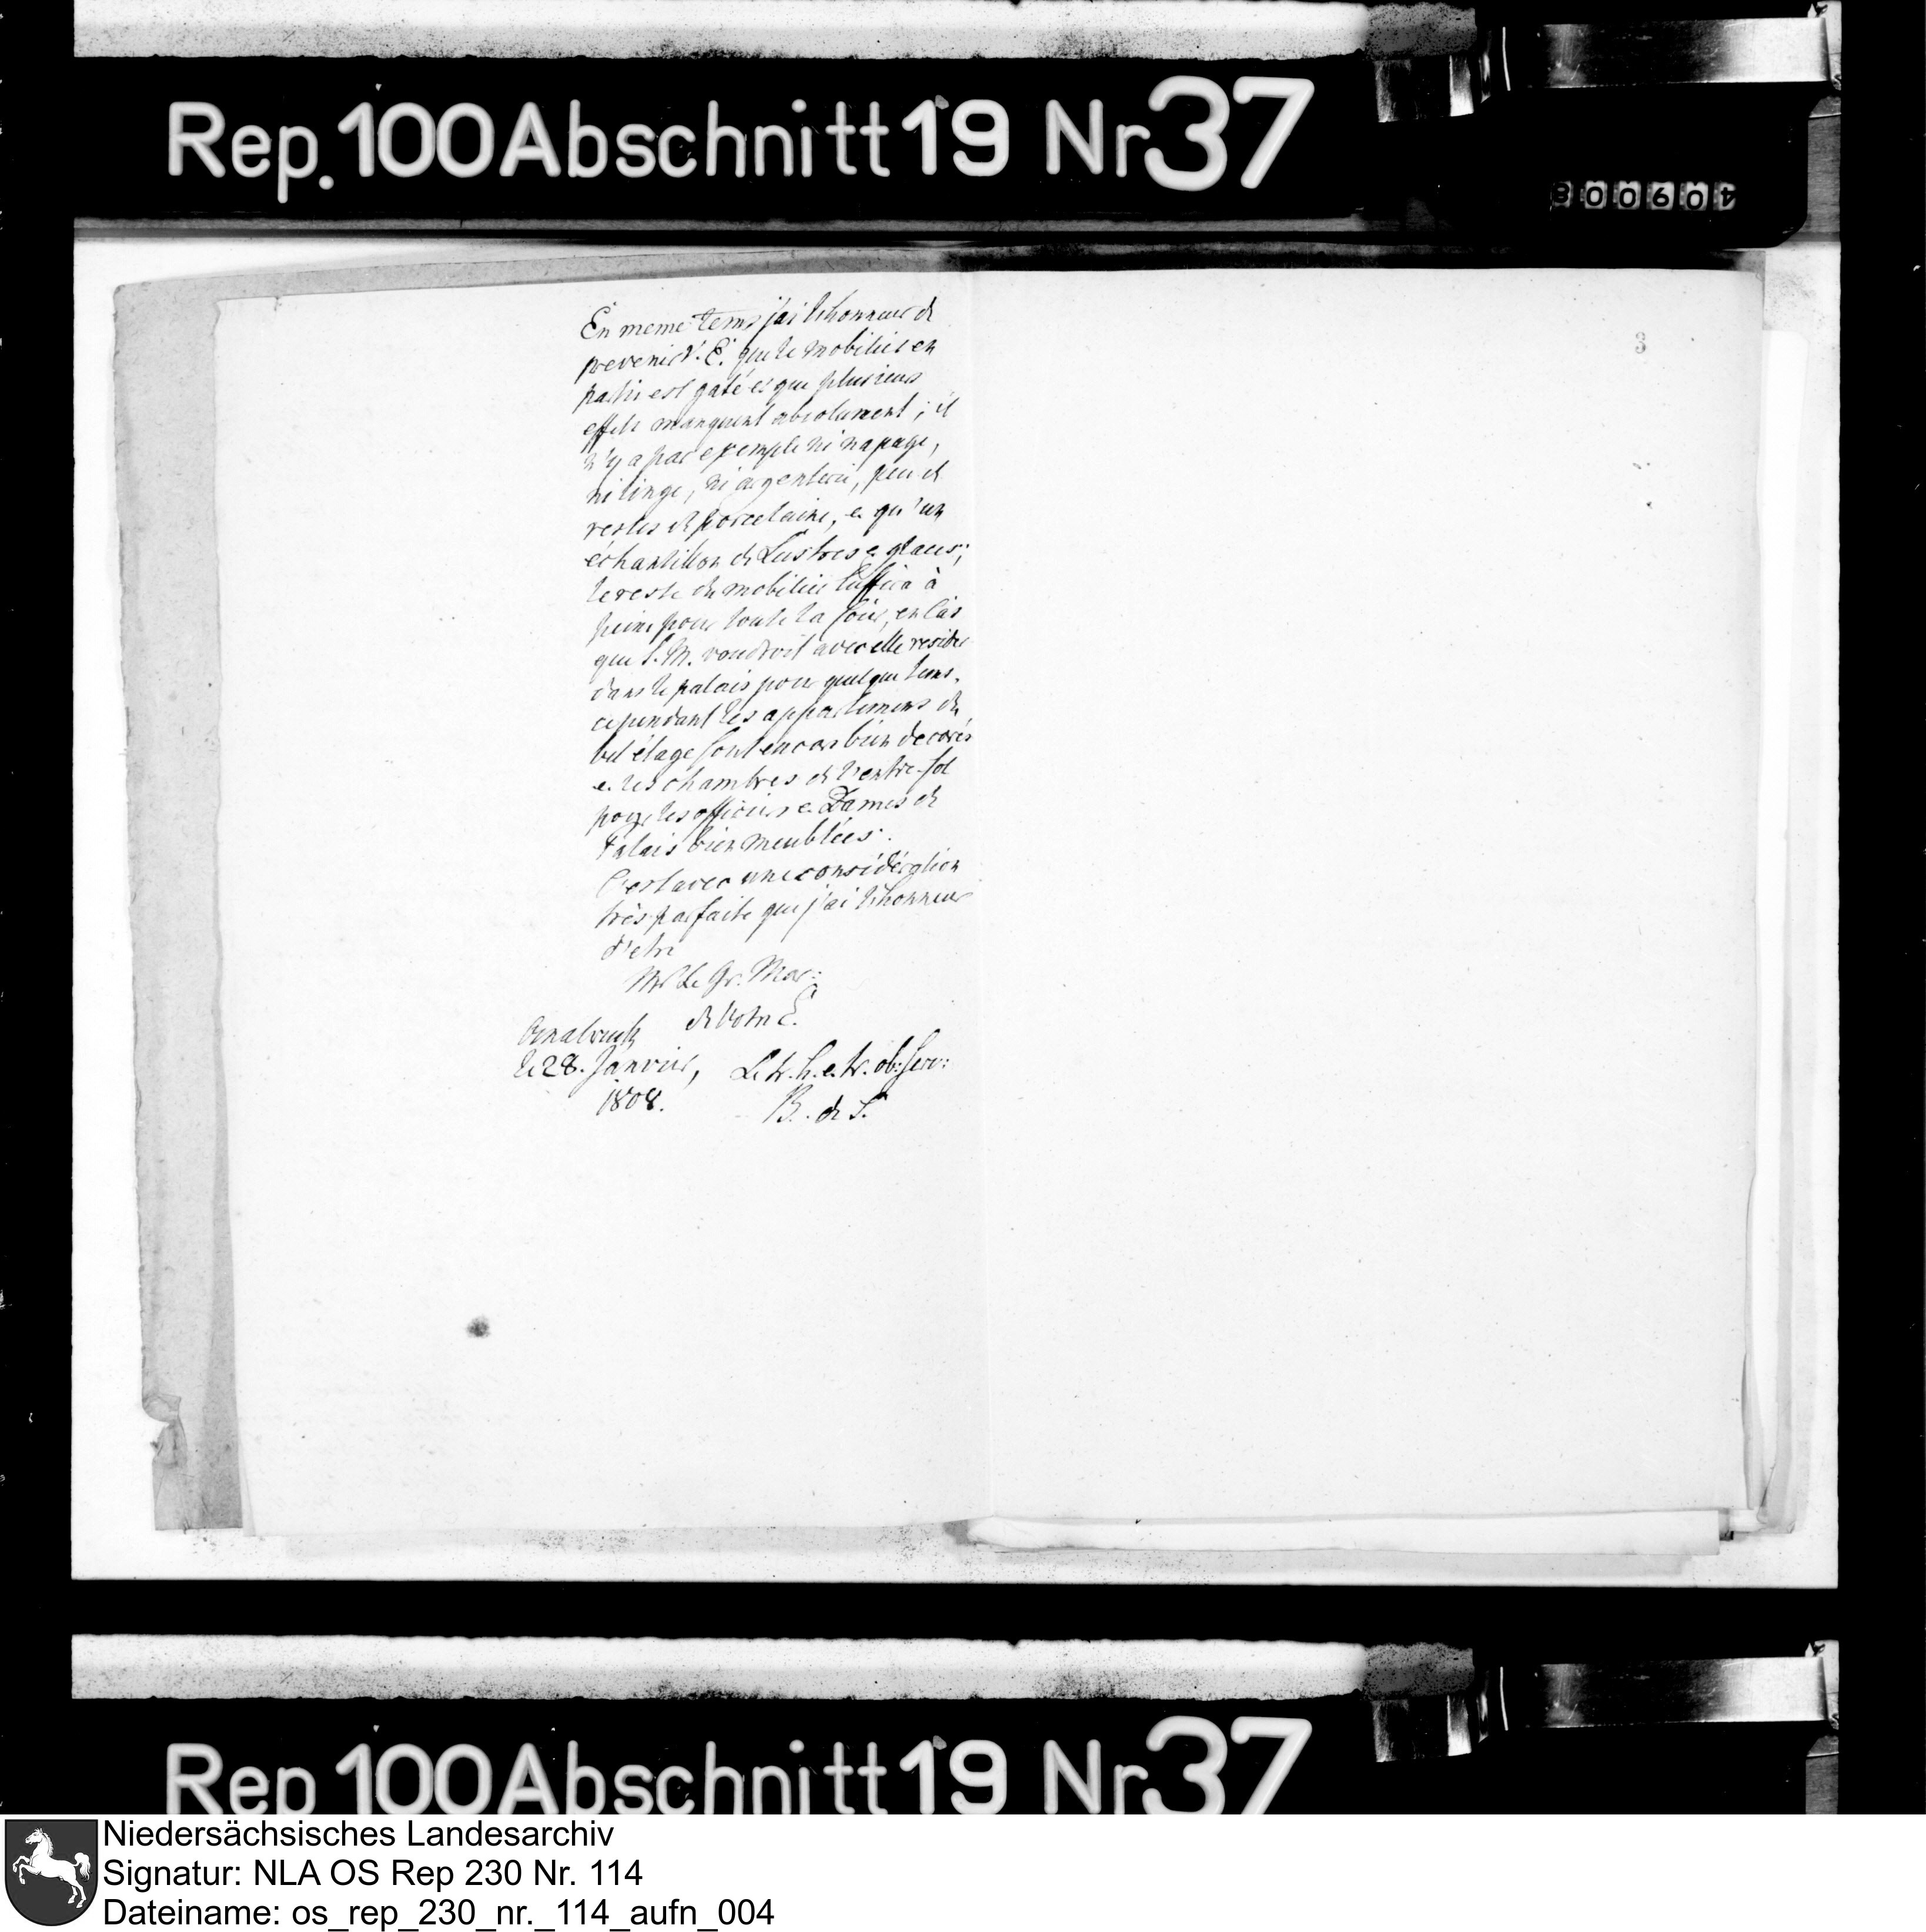 Rep.100 Abschnitt 19 Nr 37
800604
8
En meme tems j'ai l'honneur de
prevenir V. E. que le mobilier en
partie est gaté et que plusieurs
effets manquent absolument; il
n'y a par exemple ni napage,
ni linge, ni argenterie, peu de
restes de porcelaine, e. qu'un
échantillon de Lustres e. glaces;
le reste du mobilier suffira à
peine pour toute la Cour, en Cas
que S. M. voudroit avec elle resider
dans le palais pour quelque tems.
cependant les appartemens du
bel étage sont encore bien decorés
e. les chambres de l'entre-sol
pour les officiers e. Dames de
Palais bien meublées.
C'est avec une considération
très parfaite que j'ai l'honneur
d'etre
Mr. le Gr. Mar:
de Votre E.
Osnabruck
le 28. Janvier,
1808.
Le tr. h. e. tr. ob. serv:
B. de S.
Rep 100 Abschnitt 19 Nr 37
Niedersächsisches Landesarchiv
Signatur: NLA OS Rep 230 Nr. 114
Dateiname: os_rep_230_nr._114_aufn_004